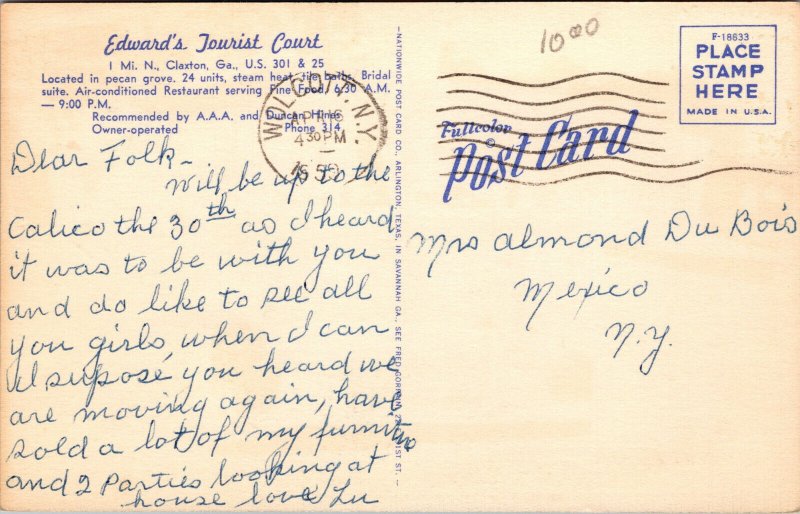 Edward's Tourist Court
1 Mi. N., Claxton, Ga., U.S. 301 & 25
Located in pecan grove. 24 units, steam heat, tile baths, Bridal
suite. Air-conditioned Restaurant serving Fine Food, 6:30 A.M.
— 9:00 P.M.
Recommended by A.A.A. and Duncan Hines
Owner-operated Phone 314
WOLCOTT, N.Y.
APR 16
4 30 PM
Dear Folk -
Will be up to the
Calico the 30th as I heard
it was to be with you
and do like to see all
you girls, when I can
I supose, you heard we
are moving again, have
sold a lot of my furnitur
and 2 Parties looking at
house love Lu
-NATIONWIDE POST CARD CO., ARLINGTON, TEXAS, IN SAVANNAH GA., SEE FRED GORDON, ST. --
1000
F-18633
PLACE
STAMP
HERE
MADE IN U.S.A.
Fullcolor
Post Card
Mrs Almond Du Bois
Mexico
N.Y.